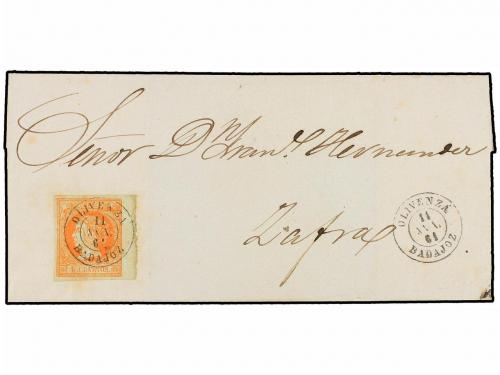 Señor Dn Franco Hernandez
Zafra
OLIVENZA
11
JUL.
61
BADAJOZ
OLIVENZA
11
JUL.
61
BADAJOZ
4 CUARTOS